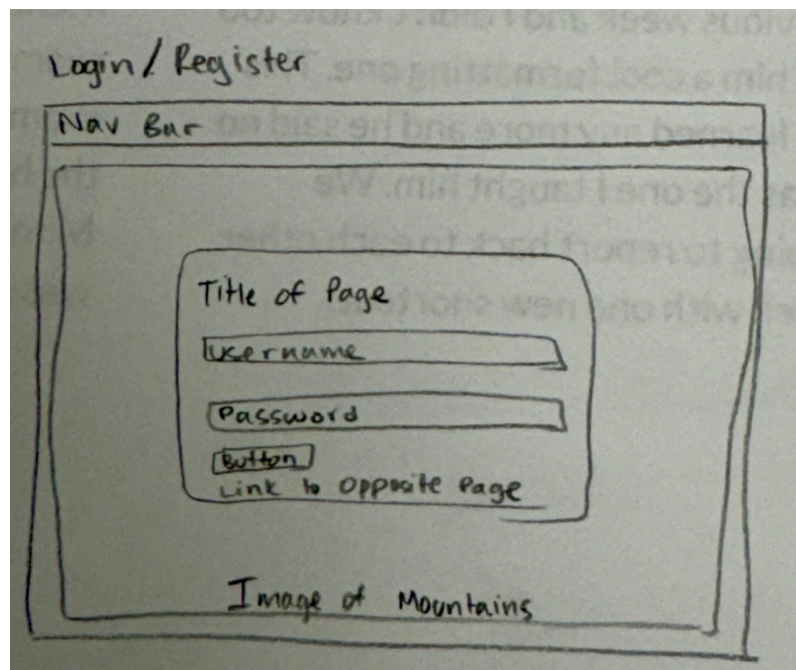 Login / Register
Nav Bar
Title of Page
username
Password
Button
Link to Opposite Page
Image of Mountains